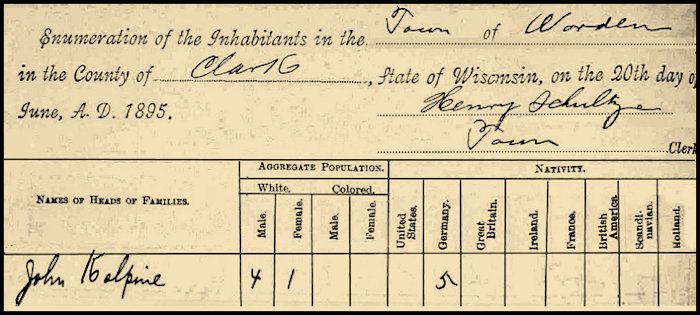 Enumeration of the Inhabitants in the Town of Worden
in the County of Clark, State of Wisconsin, on the 20th day of
June, A. D. 1895. Henry Schultze
Town Clerk
NAMES OF HEADS OF FAMILIES.
AGGREGATE POPULATION.
NATIVITY.
White.
Colored.
Male.
Female.
Male.
Female.
United States.
Germany.
Great Britain.
Ireland.
France.
British America.
Scandinavian.
Holland.
John Kalpine 4 1 5